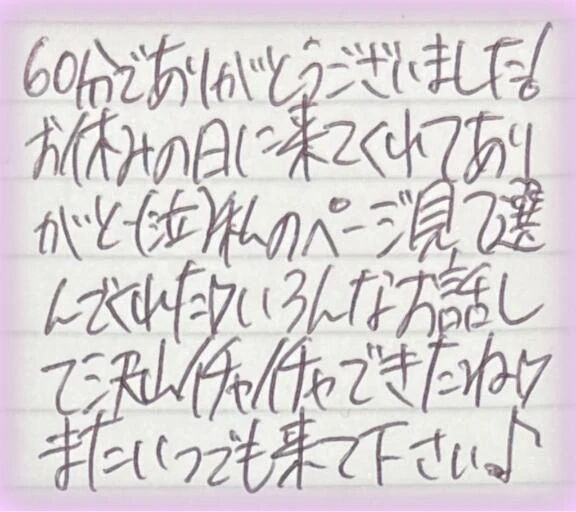 60分でありがとうございました!
お休みの日に来てくれてあり
がと(泣)私のページ見て選
んでくれたりいろんなお話し
て沢山イチャイチャできたねり
またいつでも来て下さい♪